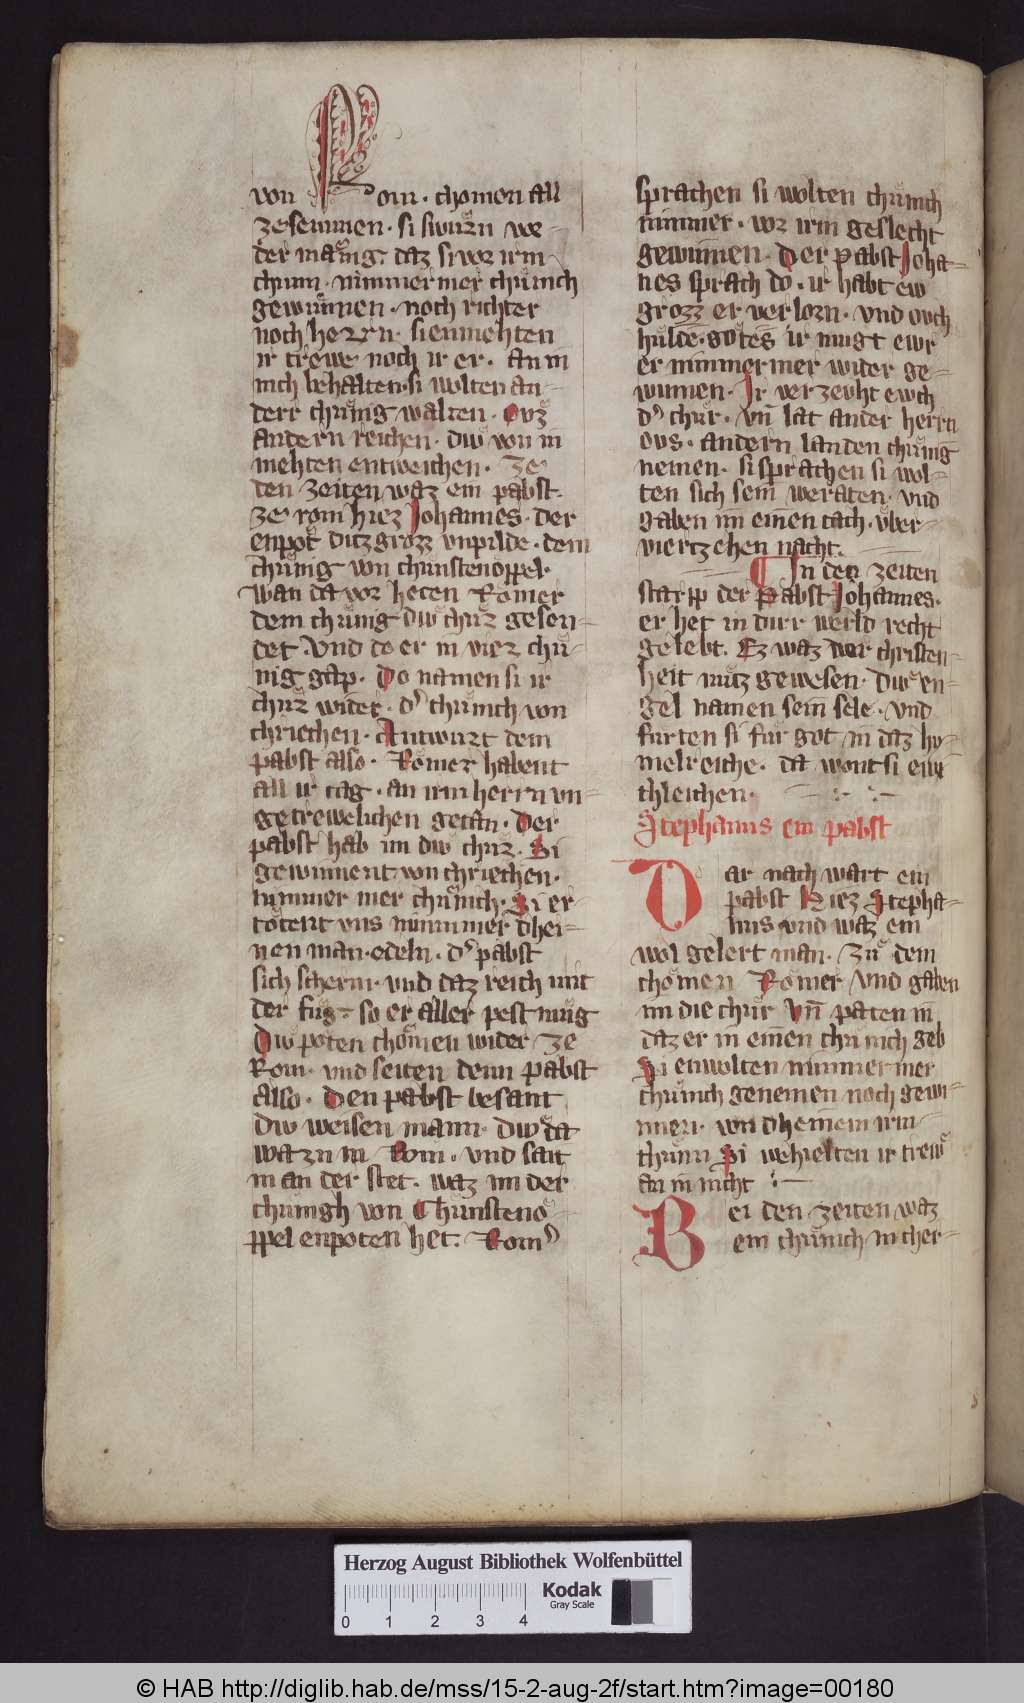 von Rom · chomen all
zesemmen · si swuͤrn we-
der manig · daz si vor irm
chum · nimmer mer chuͤnich
gewunnen · noch richter
noch herrn · si enmehten
ir trewe noch ir er · an in
nich behalten · si wolten an-
derr chuͤnig walten · Ouz
andern reichen · diw von in
mehten entweichen · Ze
den zeiten waz ein pabst ·
ze rom hiez Johannes · der
enpot ditz grozz vnpilde · dem
chuͤnig von chunstenoppel ·
wan da vor heten Romer
dem chuͤnig diw chuͤr gesen-
det · Vnd do er in vier chuͤ-
nig gap · Do namen si ir
chuͤr wider · d' chuͤnich von
chriechen · Antwurt dem
pabst also · Romer habent
all ir tag · an irm herrn vn-
getrewelichen getan · Der
pabst hab im diw chuͤr · Si
gewinnent von chriechen ·
nimmer mer chuͤnich · Si er-
totent vns nimmmer dhei-
nen man · edeln · d' pabst
sich scherm · vnd daz reich mit
der fug · so er aller pest mug
Diw poten chomen wider ze
Rom · vnd seiten denn pabst
also · Den pabst besant
diw weisen mann · diw da
wazn in Rom · vnd sait
in an der stet · waz im der
chuͤnigh von Chunsteno
ppel enpoten het · Rom'
sprachen si wolten chuͤnich
nimmer · vor irm geslecht
gewinnen · Der pabst Joha-
nes sprach do · ir habt ew
grozz er verlorn · vnd ouch
hulde · gotes ir mugt ewr
er nimmer mer wider ge-
wunnen · Ir verzeuht ewch
d' chuͤr · vn̄ lat ander herrn
ovs · andern landen chuͤnig
nemen · si sprachen si wol-
ten sich sein weraten · vnd
gaben im einen tach · vͤber
viertzehen nacht ·
In den zeiten
starp der Pabst Johannes ·
er het in dirr werld recht
gelebt · Ez waz der christen-
heit nuͤtz gewesen · Diw en-
gel namen sein sele · vnd
furten si fur got in daz hy-
melreiche · da wont si ewi
chleichen ·
Stephanus ein pabst
Dar nach wart ein
pabst hiez Stepha-
nus vnd waz ein
wol gelert man · Zu dem
chomen Romer vnd gaben
im die chuͤr vn̄ paten in
daz er in einen chuͤnich geb
Si enwolten nimmer mer
chuͤnich genemen noch gewi-
nnen · von dheinem irm-
thum Si wehielten ir trew
an in nicht
Bei den zeiten waz
ein chuͤnich in cher-
Herzog August Bibliothek Wolfenbüttel
Kodak
Gray Scale
0 1 2 3 4
© HAB http://diglib.hab.de/mss/15-2-aug-2f/start.htm?image=00180